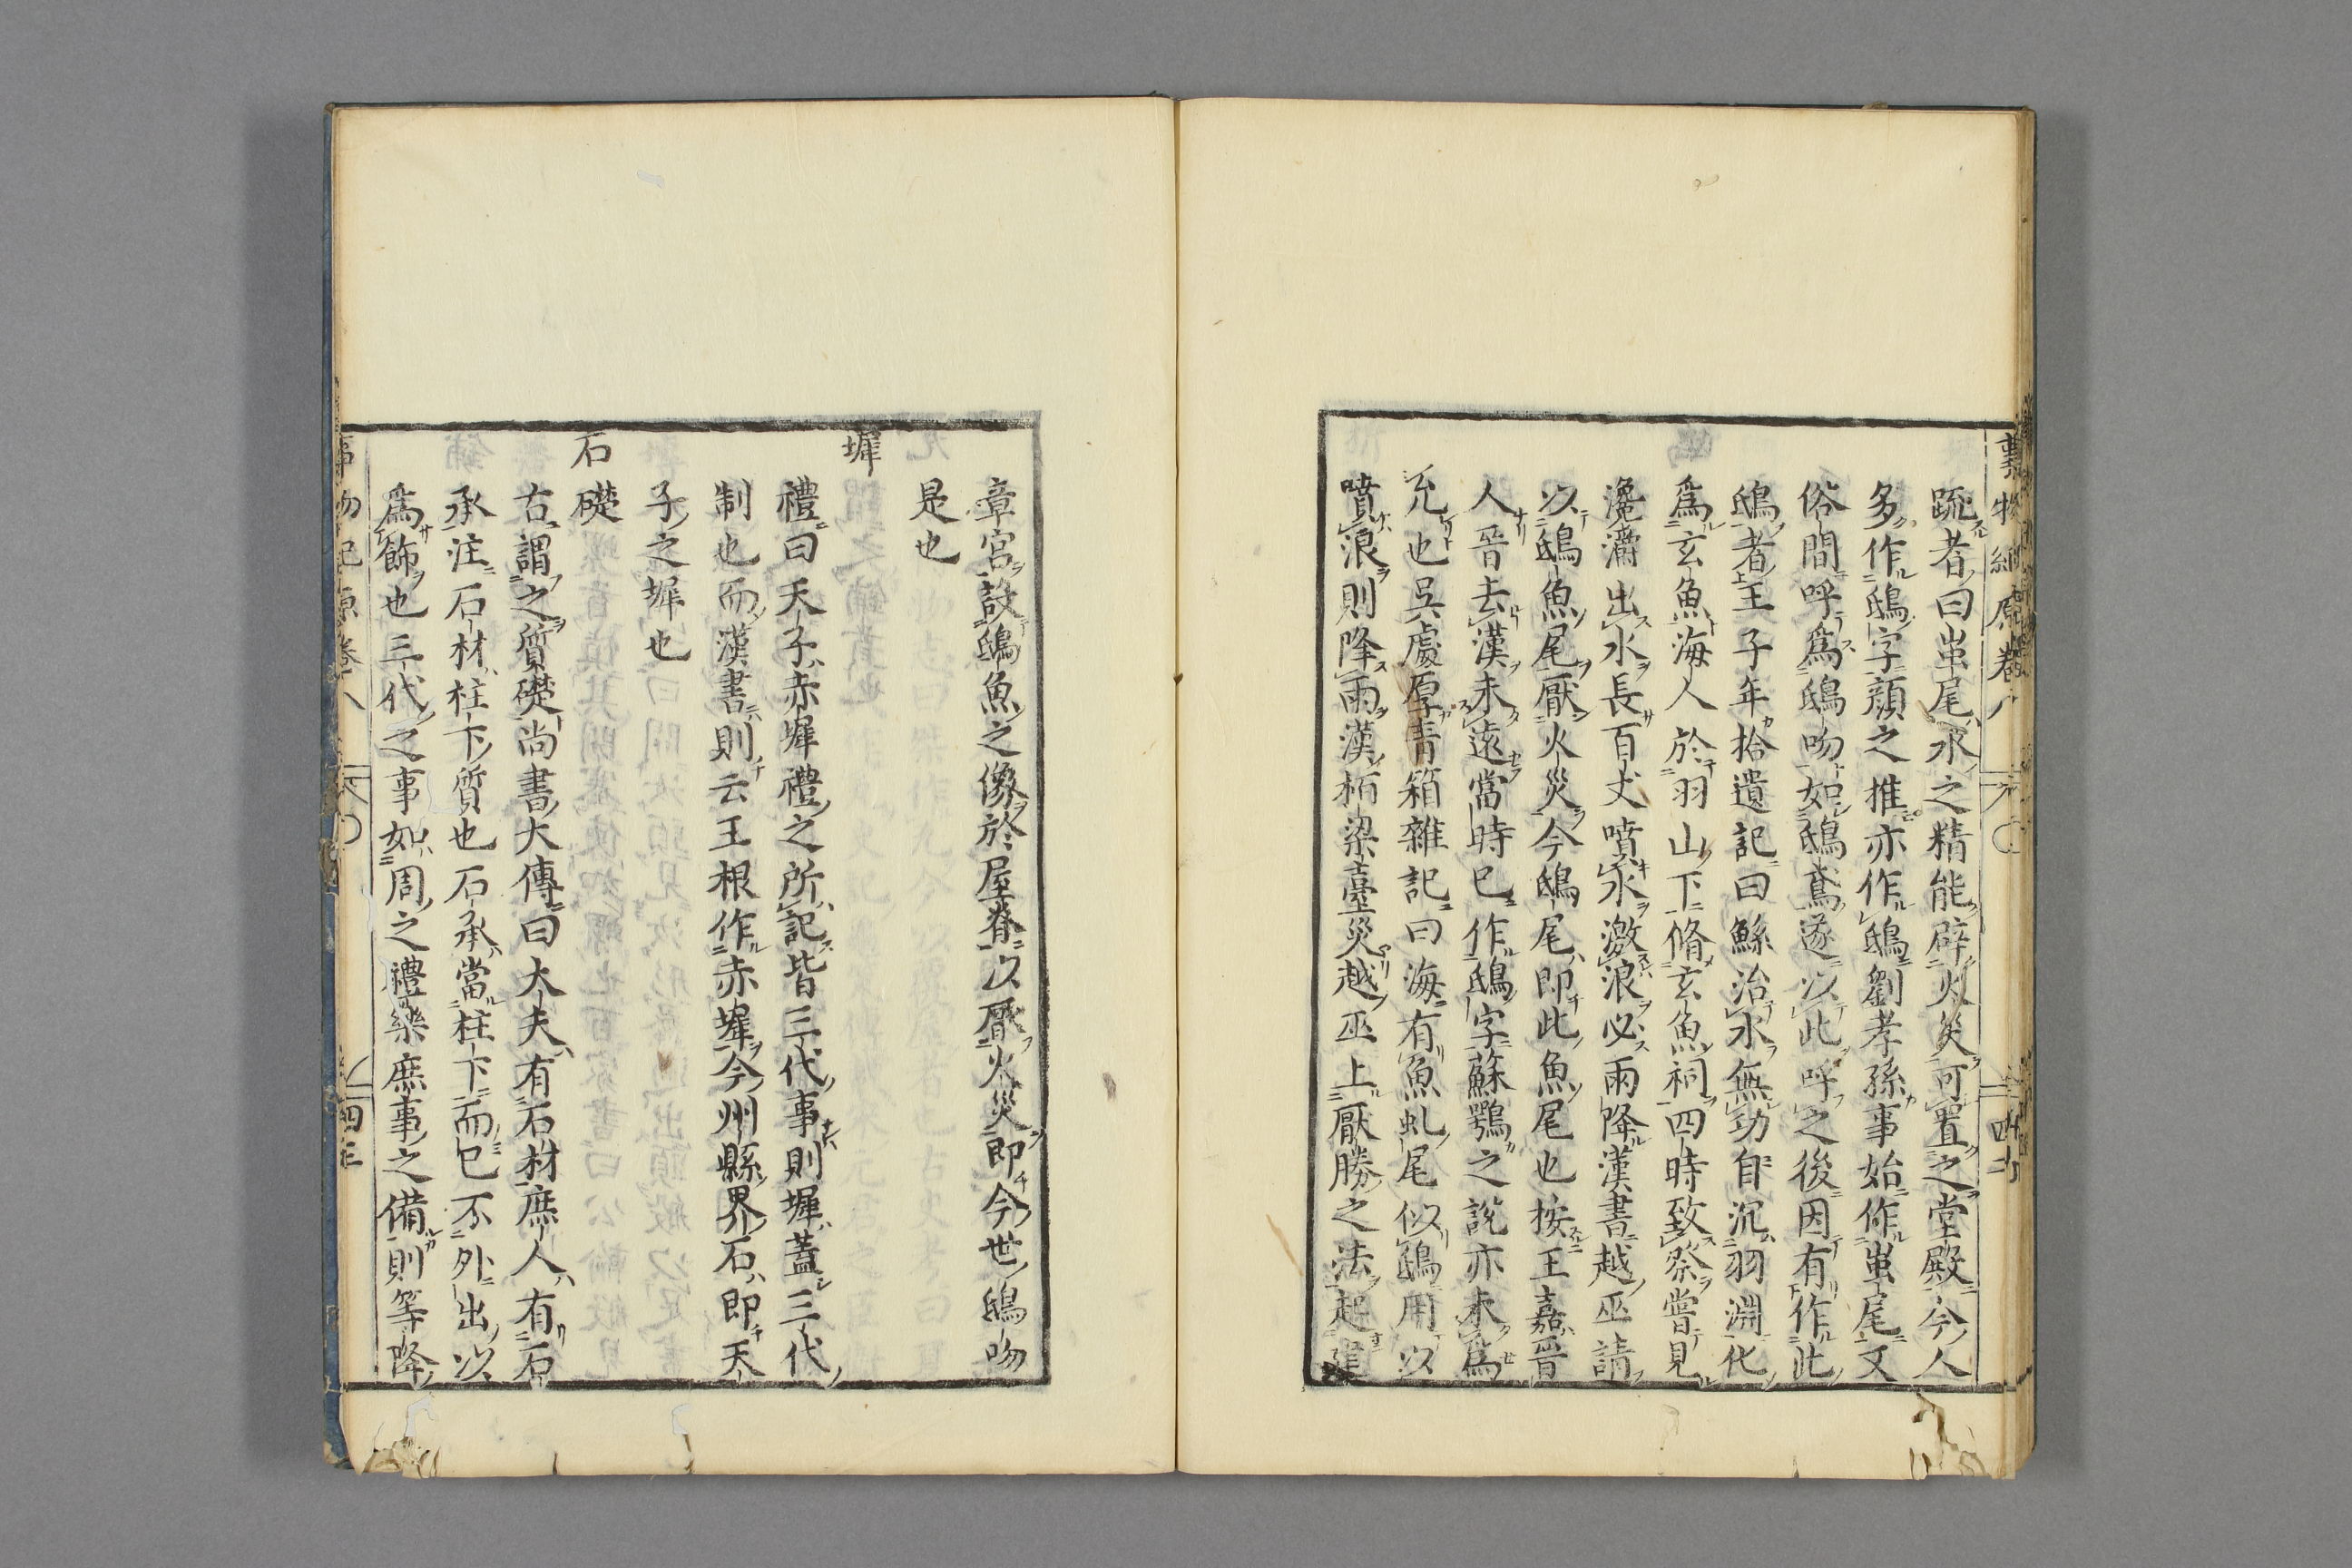 疏者曰蚩尾水之精能辟火災可置之堂殿今人
多作鴟字顔之推亦作鴟劉孝孫事始作蚩尾又
俗間呼爲鴟吻如鴟鳶遂以此呼之後因有作此
鴟者王子年拾遺記曰鯀治水無功自沉羽淵化
爲玄魚海人於羽山下脩玄魚祠四時致祭嘗見
瀺灂出水長百丈噴水激浪必雨降漢書越巫請
以鴟魚尾厭火災今鴟尾即此魚尾也按王嘉晉
人晉去漢未遠當時已作鴟字蘇鶚之說亦未爲
允也吳處厚青箱雜記曰海有魚虬尾似鴟用以
噴浪則降雨漢栢梁臺災越巫上厭勝之法起建
章宮設鴟魚之像於屋脊以厭火災即今世鴟吻
是也
墀
禮曰天子赤墀禮之所記皆三代事則墀蓋三代
制也而漢書則云王根作赤墀今州縣界石即天
子之墀也
石礎
古謂之質礎尚書大傳曰大夫有石材庶人有石
承注石材柱下質也石承當柱下而已不外出以
爲飾也三代之事如周之禮樂庶事之備則等降